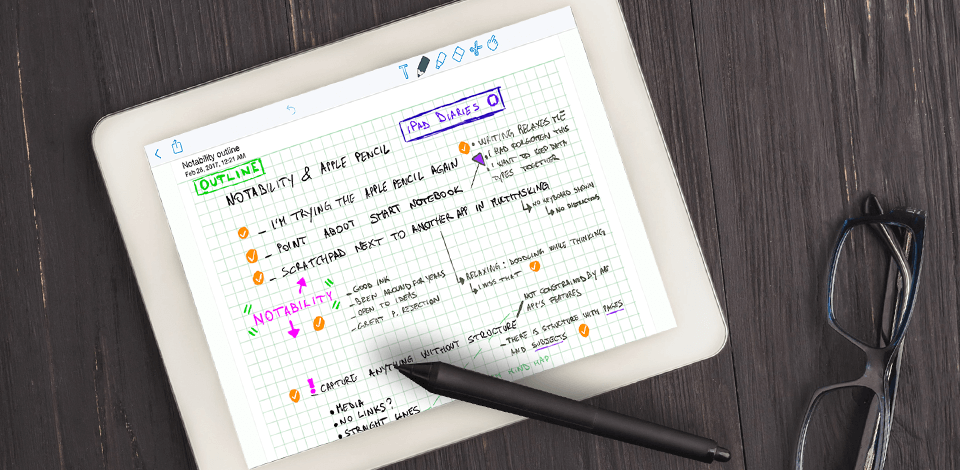 Notability outline
Feb 28, 2017, 12:21 AM
OUTLINE
iPAD DIARIES
NOTABILITY & APPLE PENCIL
- I'M TRYING THE APPLE PENCIL AGAIN
• WRITING RELAXES ME
• I HAD FORGOTTEN THIS
• I WANT TO KEEP DATA
TYPES TOGETHER
- POINT ABOUT START NOTEBOOK
- SCRATCHPAD NEXT TO ANOTHER APP IN MULTITASKING
NO KEYBOARD SHOWN
NO DISTRACTIONS
RELAXING: DOODLING WHILE THINKING
I MISS THAT
NOTABILITY
- GOOD INK
- BEEN AROUND FOR YEARS
- OPEN TO IDEAS
- GREAT P. REJECTION
! CAPTURE ANYTHING WITHOUT STRUCTURE
NOT CONSTRAINED BY AN
APP'S FEATURES
- THERE IS STRUCTURE WITH PAGES
AND SUBJECTS
• MEDIA
• NO LINKS?
• STRAIGHT LINES
MIND MAP